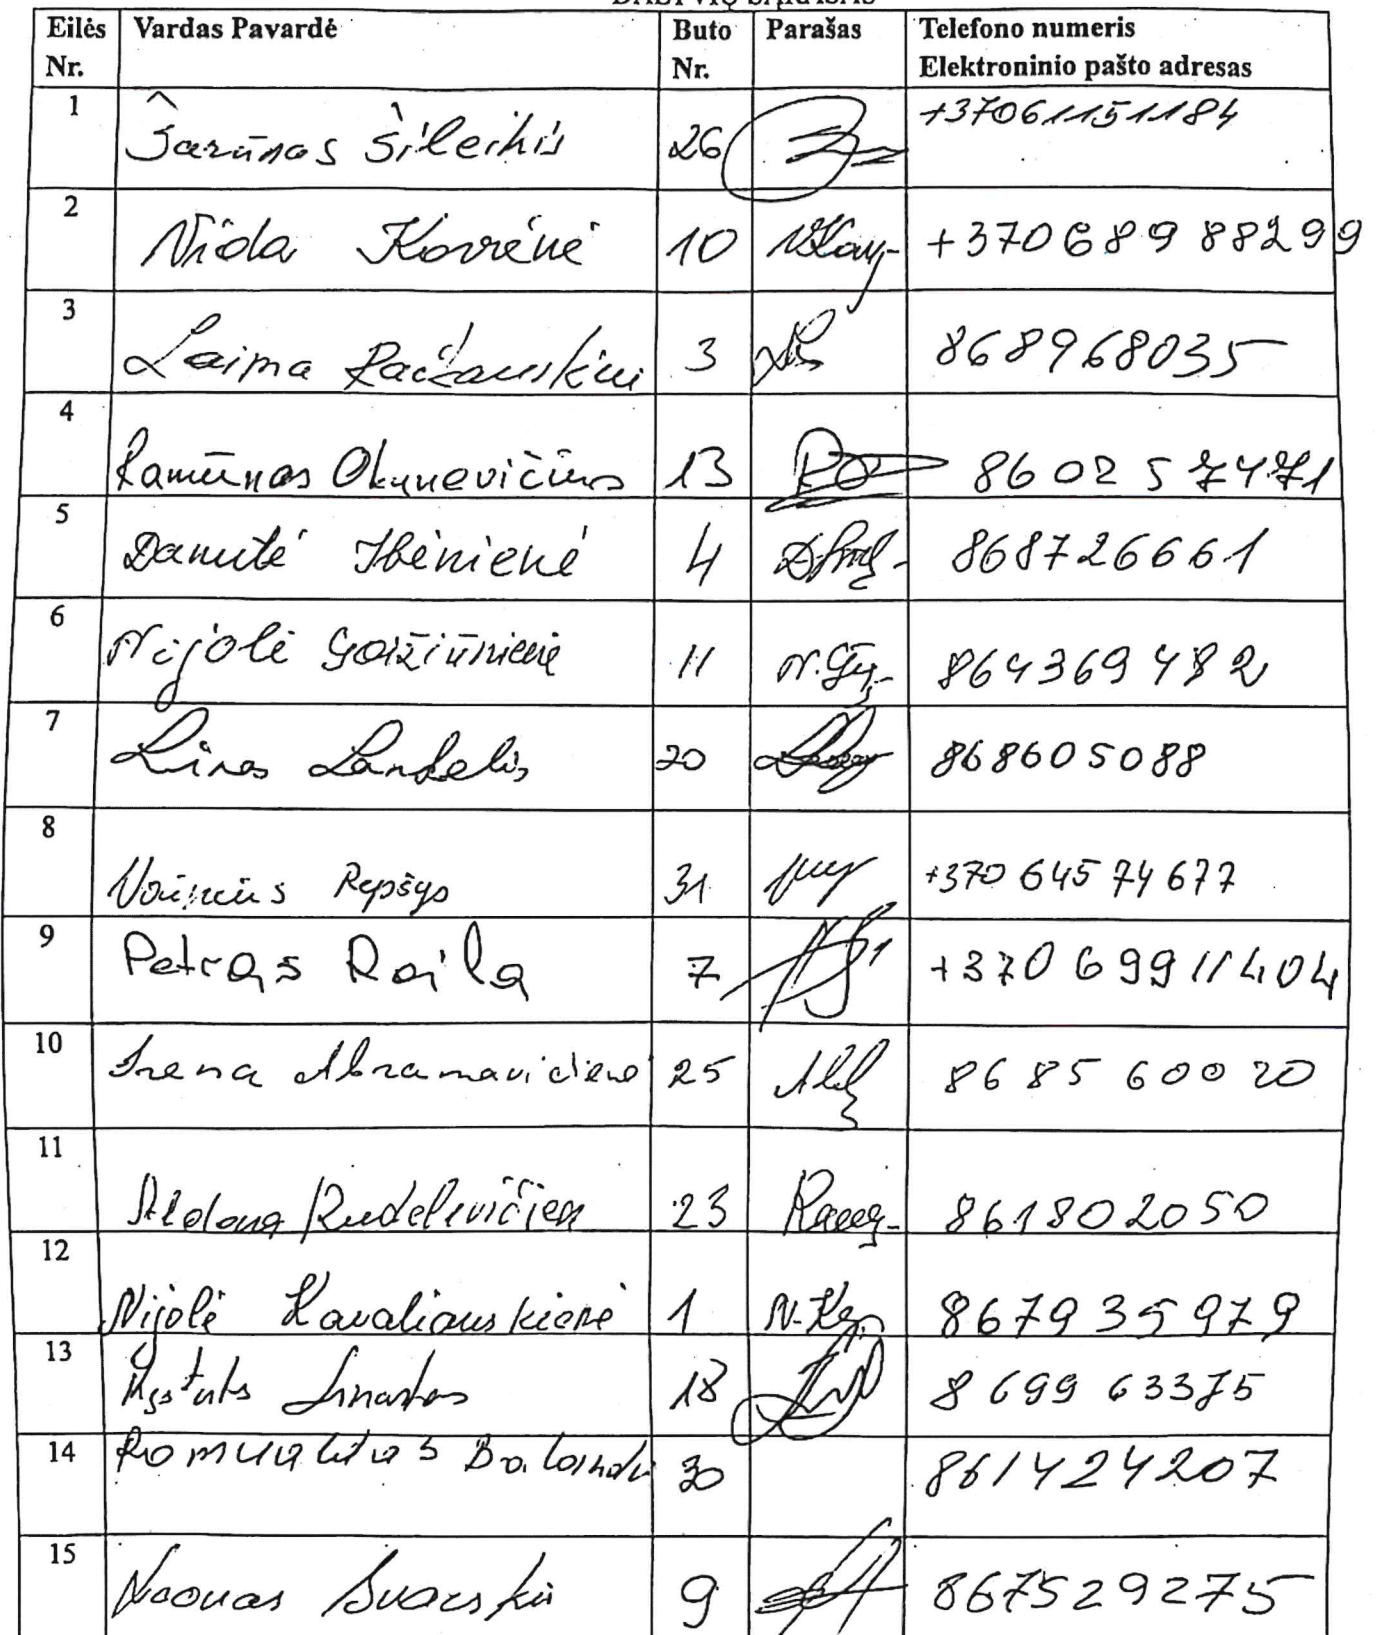 DALYVIŲ SĄRAŠAS
Eilės Nr. Vardas Pavardė Buto Nr. Parašas Telefono numeris Elektroninio pašto adresas
1 Šarūnas Šileikis 26 +37061151184
2 Nida Kovrėnė 10 +37068988299
3 Laima Račkauskienė 3 868968035
4 Ramūnas Okunevičius 13 860257471
5 Danutė 4 868726661
6 Nijolė Gaižiūnienė 11 864369482
7 Linas 20 868605088
8 Vainius Repšys 31 +370 645 74 677
9 Petras Raila 7 +370 699 11404
10 Irena Abramavičienė 25 868560020
11 Aldona 23 861802050
12 Nijolė Kavaliauskienė 1 867935979
13 18 869963375
14 Romualdas 30 861424207
15 9 867529275